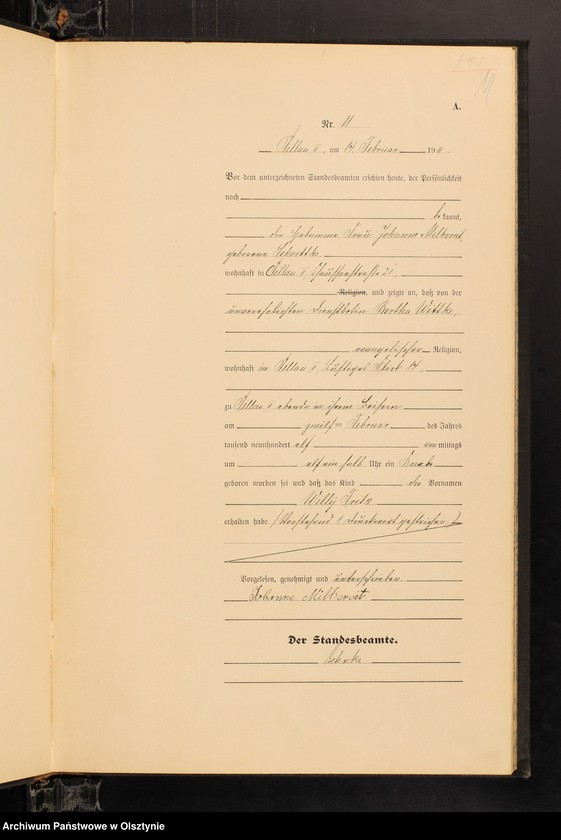 11
A.
Nr. 11
Pillau II, am 14. Februar 1911.
Vor dem unterzeichneten Standesbeamten erschien heute, der Persönlichkeit
nach
be kannt,
die Hebamme Frau Johanne Milkoreit,
geborene
wohnhaft in Pillau II,
Religion, und zeigte an, daß von der
unverehelichten Dienstbotin Bertha Wittke,
evangelischer Religion,
wohnhaft in Pillau II, 14,
zu Pillau II ebenda in ihrem Beisein
am zwölften Februar des Jahres
tausend neunhundert elf vor mittags
um elf ein halb Uhr ein Knabe
geboren worden sei und daß das Kind die Vornamen
Willy Fritz
erhalten habe. (Vorstehend 1 Druckwort gestrichen.)
Vorgelesen, genehmigt und unterschrieben.
Johanne Milkoreit
Der Standesbeamte.
Behnke
Archiwum Państwowe w Olsztynie